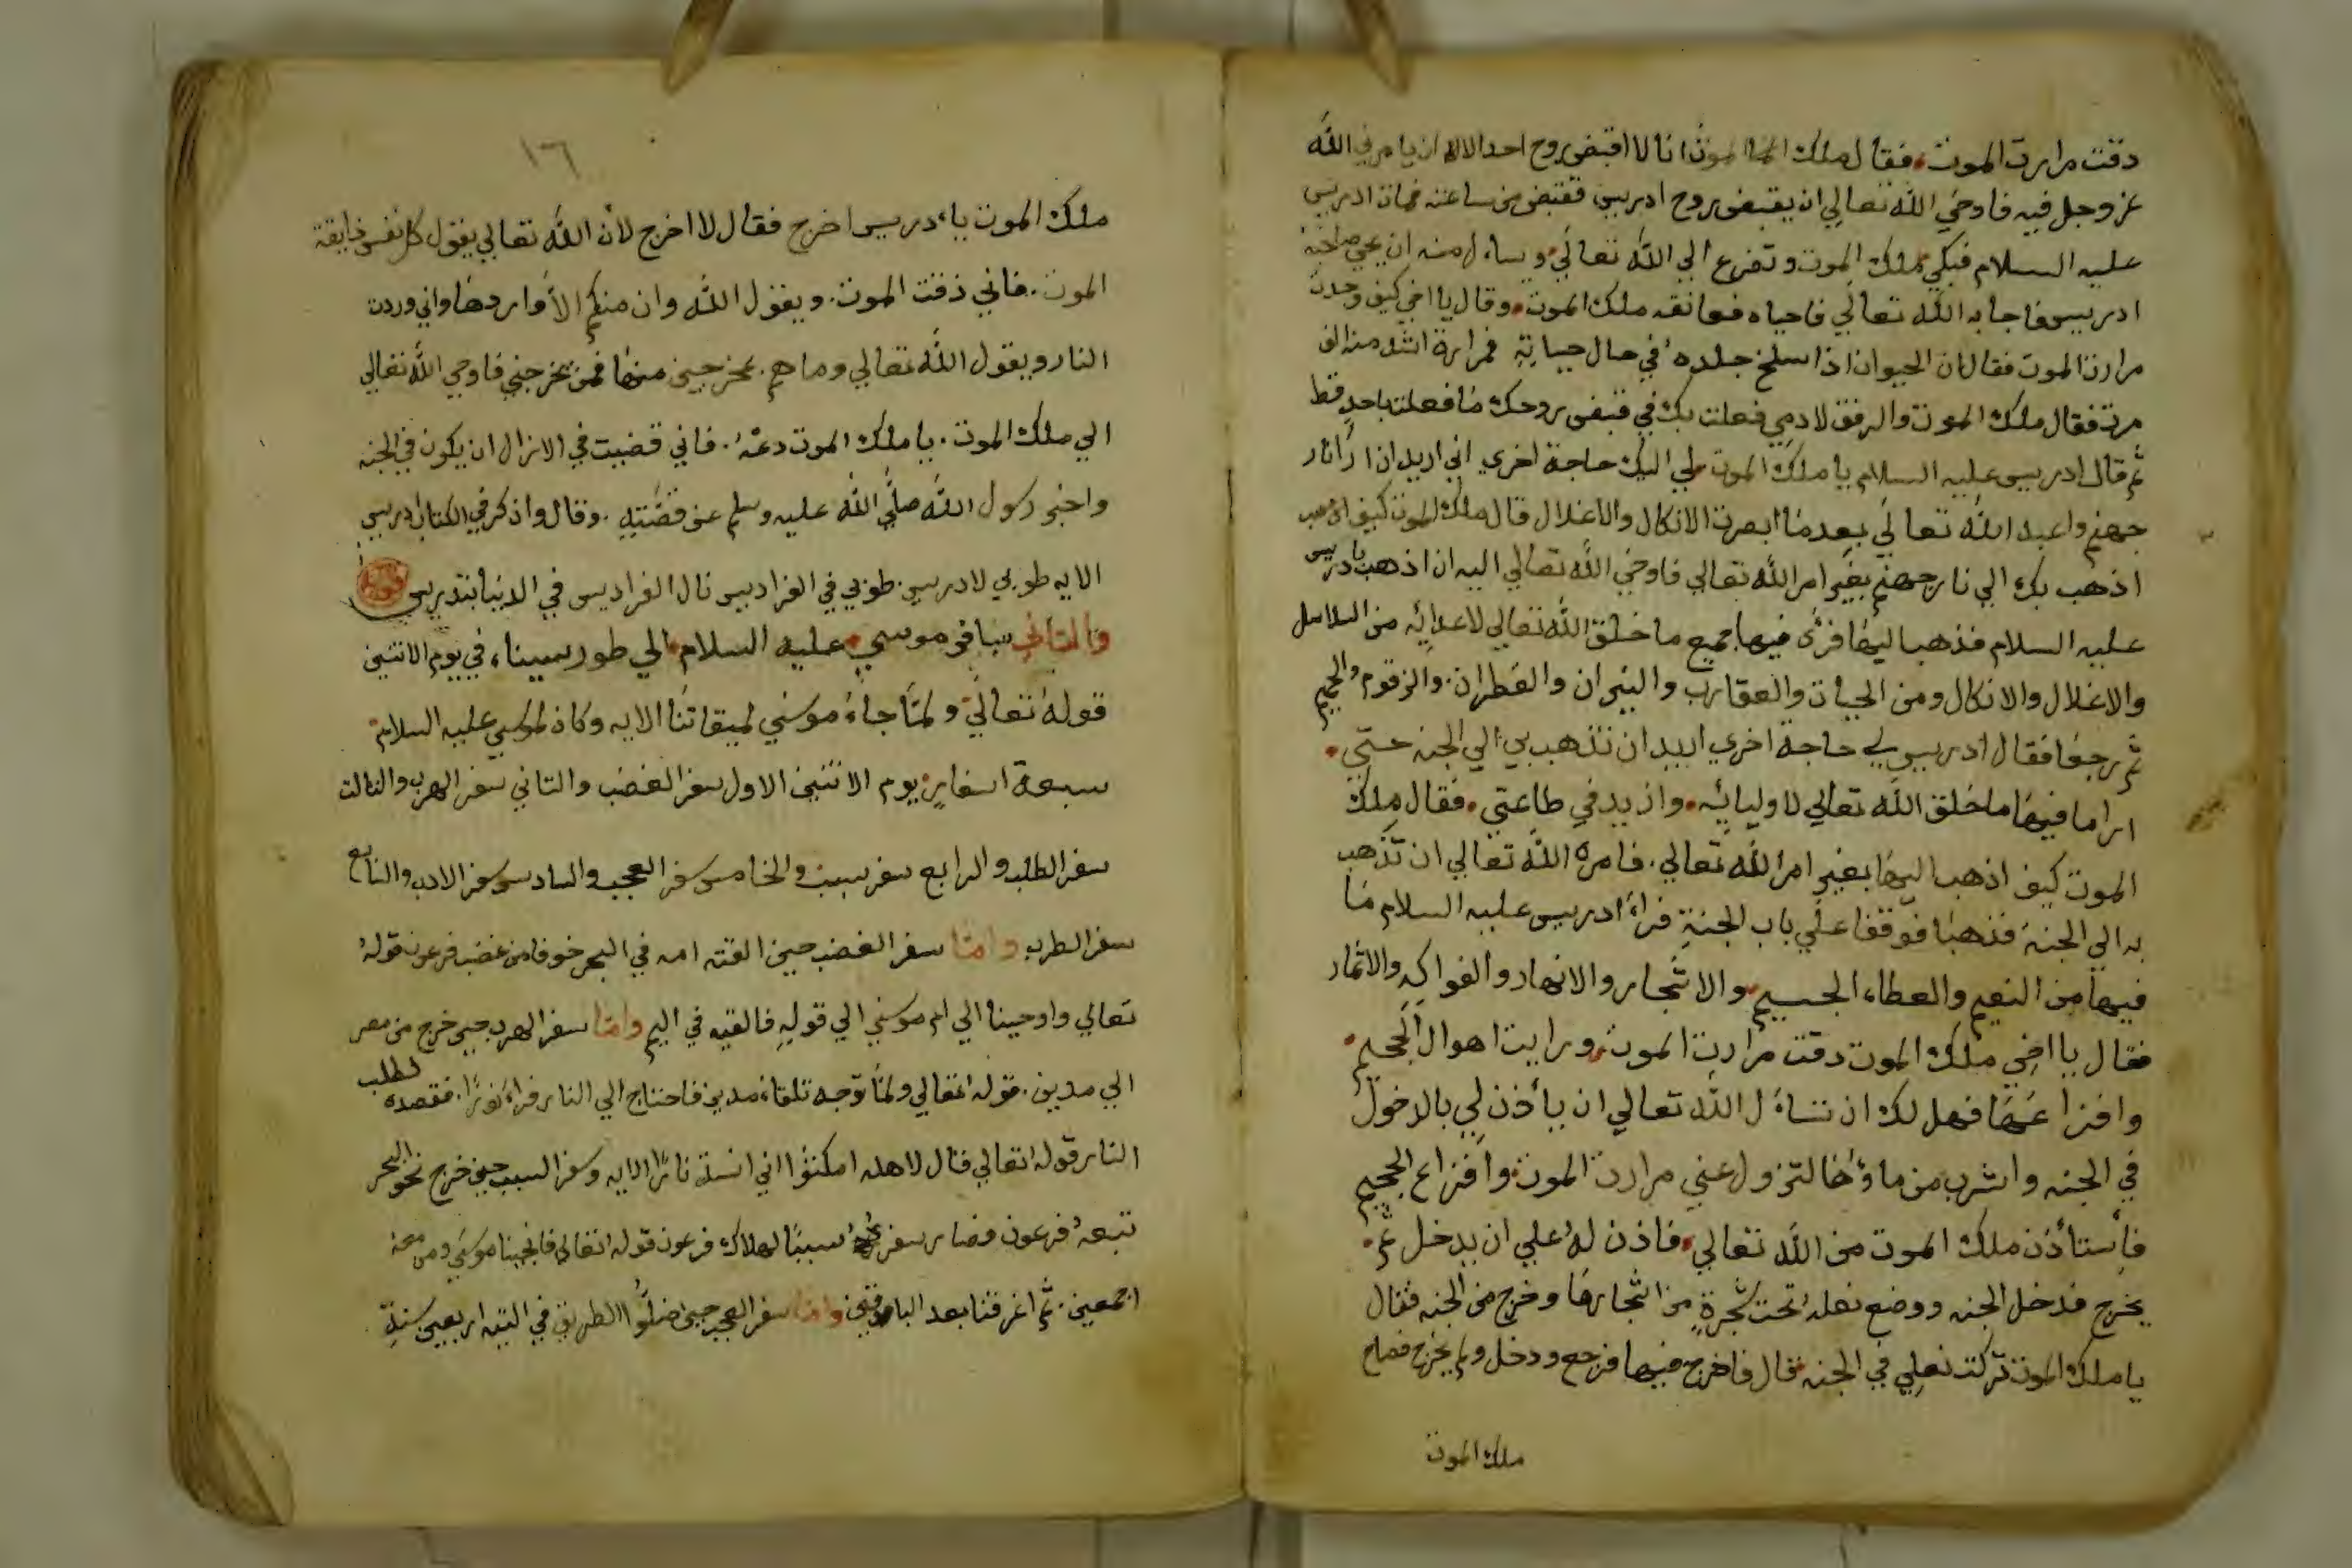 دقت مرارت الموت فقال ملك الموت انا لا اقبض روح احد الا ان يامرني الله
عز وجل فيه فاوحي الله تعالي ان يقبض روح ادريس فقبض من ساعته فمات ادريس
عليه السلام فبكي ملك الموت وتضرع الي الله تعالي ويساءل منه ان يحي صاحبه
ادريس فاجابه الله تعالي فاحياه فعانقه ملك الموت وقال يا اخي كيف وجدت
مرارت الموت فقال ان الحيوان اذا سلخ جلده في حال حياته فمرارة اشد منه الف
مرت فقال ملك الموت والرفق لادمي فعلت بك في قبض روحك ما فعلت باحد قط
ثم قال ادريس عليه السلام يا ملك الموت لي اليك حاجة اخري اني اريد ان ارا نار
جهنم واعبد الله تعالي بعد ما ابصرت الانكال والاغلال قال ملك الموت كيف
اذهب بك الي نار جهنم بغير امر الله تعالي فاوحي الله تعالي اليه ان اذهب بادريس
عليه السلام فذهب اليها فرأى فيها جميع ما خلق الله تعالي لاعدائه من السلاسل
والاغلال والانكال ومن الحيات والعقارب والنيران والقطران والزقوم والحميم
ثم رجعا فقال ادريس لي حاجة اخري اريد ان تذهب بي الي الجنه حتي
ارا ما فيها ما خلق الله تعالي لاوليائه وازيد في طاعتي فقال ملك
الموت كيف اذهب اليها بغير امر الله تعالي فامره الله تعالي ان تذهب
به الي الجنة فذهبا فوقفا علي باب الجنة فراء ادريس عليه السلام ما
فيها من النعيم والعطاء الجسيم والاشجار والانهار والفواكه والاثمار
فقال يا اخي ملك الموت دقت مرارت الموت ورايت اهوال الجحيم
وافزا عها فهل لك ان تساءل الله تعالي ان يأذن لي بالدخول
في الجنه واشرب من ماؤها لتزول عني مرارت الموت وافزاع الجحيم
فأستأذن ملك الموت من الله تعالي فاذن له علي ان يدخل ثم
يخرج فدخل الجنه ووضع نعله تحت شجرة من اشجارها وخرج من الجنه فقال
يا ملك الموت تركت نعلي في الجنه فقال فاخرج فيها فرجع ودخل ولم يخرج فصاح
ملك الموت
١٦
ملك الموت ياءدريس اخرج فقال لا اخرج لأن الله تعالي يقول كل نفس ذايقة
الموت فاني ذقت الموت ويقول الله وان منكم الا واردها واني وردت
النار ويقول الله تعالي وما هم بمخرجين منها فمن يخرجني فاوحي الله تعالي
الي ملك الموت يا ملك الموت دعه فاني قضيت في الازال ان يكون في الجنه
واخبر رسول الله صلي الله عليه وسلم عن قصته وقال واذكر في الكتاب ادريس
الايه طوبي لادريس طوبي في الفراديس نال الفراديس في الدنيا بتدريس
والثاني سافر موسي عليه السلام الي طور سيناء في يوم الاثنين
قوله تعالي ولما جاء موسي لميقاتنا الايه وكان لموسي عليه السلام
سبعة اسفار يوم الاثنين الاول سفر الغضب والثاني سفر الهرب والثالث
سفر الطلب والرابع سفر سبب والخامس سفر العجب والسادس سفر الادب والسابع
سفر الطرب واما سفر الغضب حين القته امه في البحر خوفا من غضب فرعون قوله
تعالي واوحينا الي ام موسي الي قوله فالقيه في اليم واما سفر الهرب حين خرج من مصر
الي مدين قوله تعالي ولما توجه تلقاء مدين فاحتاج الي النار فراء نورا فقصده لطلب
النار قوله تعالي قال لاهله امكثوا اني انست نارا الايه وسفر السبب حين خرج نحو البحر
تبعه فرعون فصار سفره سببا لهلاك فرعون قوله تعالي فانجينا موسي ومن معه
اجمعين ثم اغرقنا بعد الباقين واما سفر العجب حين ضلوا الطريق في التيه اربعين سنة